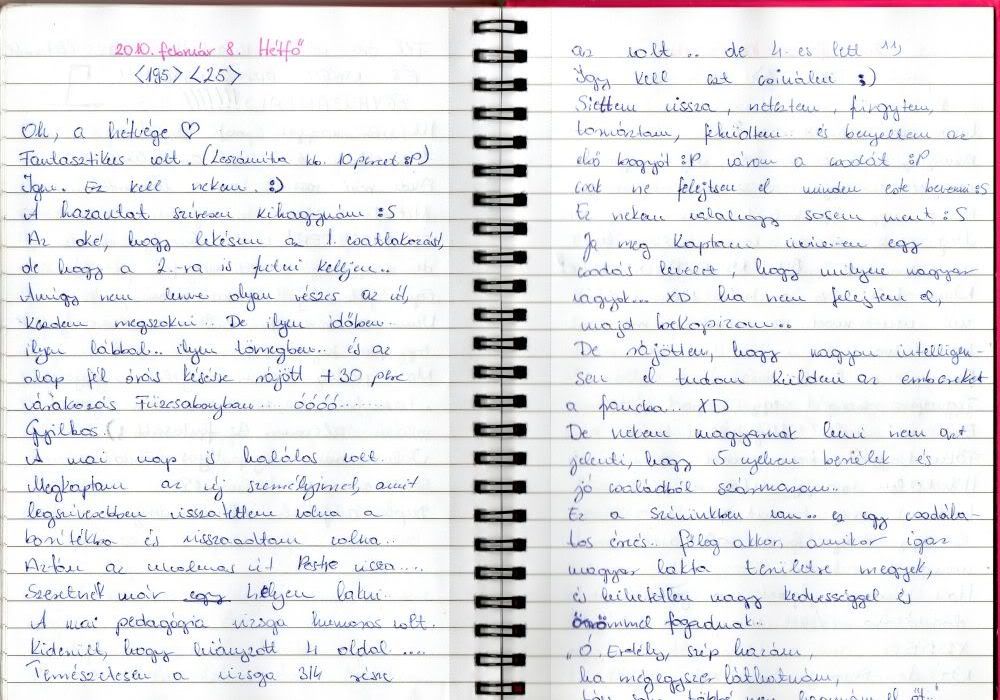 2010. február 8. Hétfő
<195> <25>
Oh, a hétvége ♡
Fantasztikus volt. (Leszámítva kb. 10 percet :P)
Igen. Ez kell nekem. :)
A hazautat szívesen kihagynám :S
Az oké, hogy lekésem az 1. csatlakozást,
de hogy a 2.-ra is futni kelljen..
Amúgy nem lenne olyan vészes az út,
kezdem megszokni.. De ilyen időben..
ilyen lábbal.. ilyen tömegben.. és az
alap fél órás késésre rájött +30 perc
várakozás Füzesabonyban... óóóó.......
Gyilkos (
A mai nap is halálos volt.
Megkaptam az új személyimet, amit
legszívesebben visszatettem volna a
borítékba és visszaadtam volna..
Aztán az unalmas út Pestre vissza....
Szeretnék már egy helyen lakni..
A mai pedagógia vizsga humoros volt.
Kiderült, hogy hiányzott 4 oldal ....
Természetesen a vizsga 3/4 része
az volt .. de 4-es lett ^^,
Így kell ezt csinálni ;)
Siettem vissza, neteztem, firgytem,
tornáztam, feküdtem.. és benyeltem az
első bogyót :P várom a csodát :P
csak ne felejtsem el minden este bevenni :S
Ez nekem valahogy sosem ment :S
Ja meg kaptam iwiw-en egy
csodás levelet, hogy milyen magyar
vagyok... XD ha nem felejtem el,
majd bekopizom..
De rájöttem, hogy nagyon intelligen-
sen el tudom küldeni az embereket
a fancba... XD
De nekem magyarnak lenni nem azt
jelenti, hogy 5 nyelven beszélek és
jó családból származom..
Ez a szívünkben van.. ez egy csodála-
tos érzés.. főleg akkor amikor igaz
magyar lakta területre megyek,
és hihetetlen nagy kedvességgel és
örömmel fogadnak..
"Ó, Erdély, szép hazám,
ha mégegyszer láthatnám,